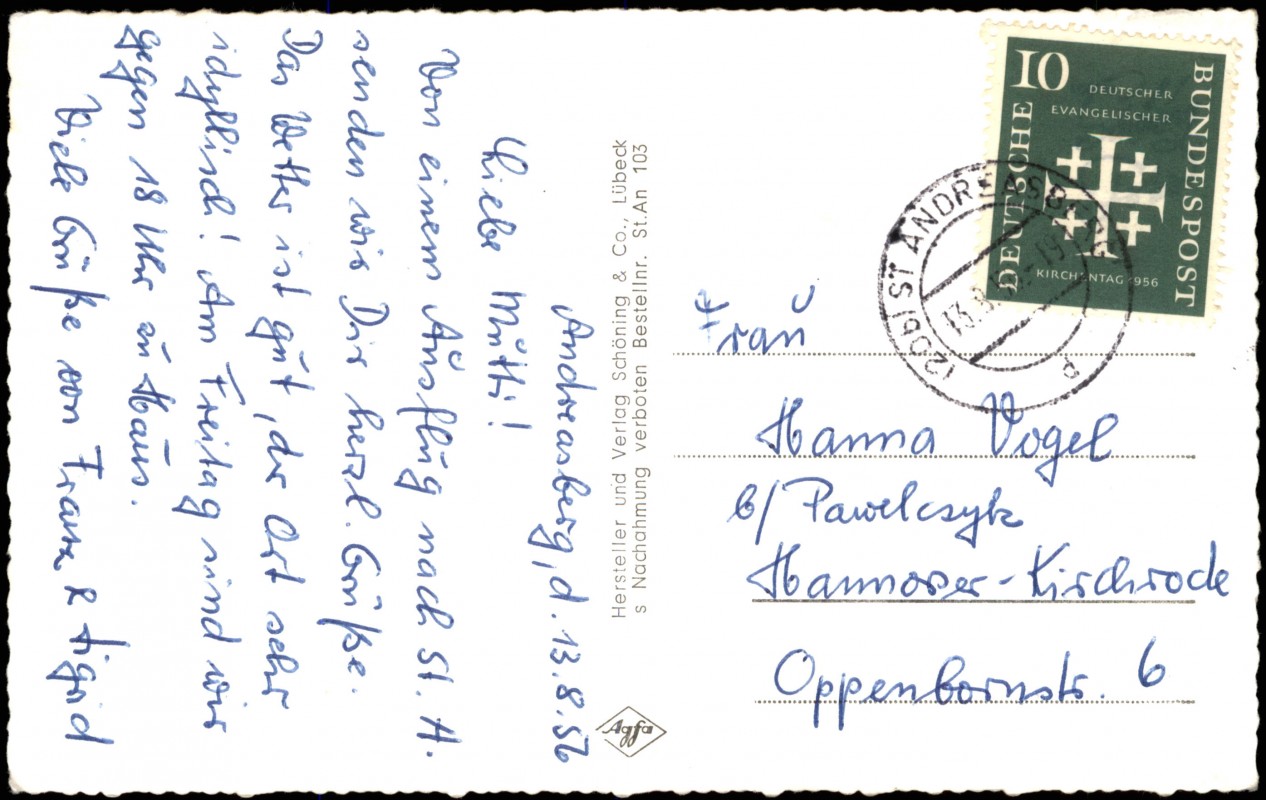 Andreasberg, d. 13.8.56
Liebe Mutti!
Von einem Ausflug nach St. A.
senden wir Dir herzl. Grüße.
Das Wetter ist gut, der Ort sehr
idyllisch! Am Freitag sind wir
gegen 18 Uhr zu Haus.
Viele Grüße von Franz & Sigrid
Hersteller und Verlag Schöning & Co., Lübeck
s Nachahmung verboten Bestellnr. St.An 103
Agfa
10
DEUTSCHER
EVANGELISCHER
KIRCHENTAG 1956
DEUTSCHE
BUNDESPOST
(20b) ST ANDREASBERG
13.8.56-19
Frau
Hanna Vogel
b/ Pawelczyk
Hannover-Kirchrode
Oppenbornstr. 6